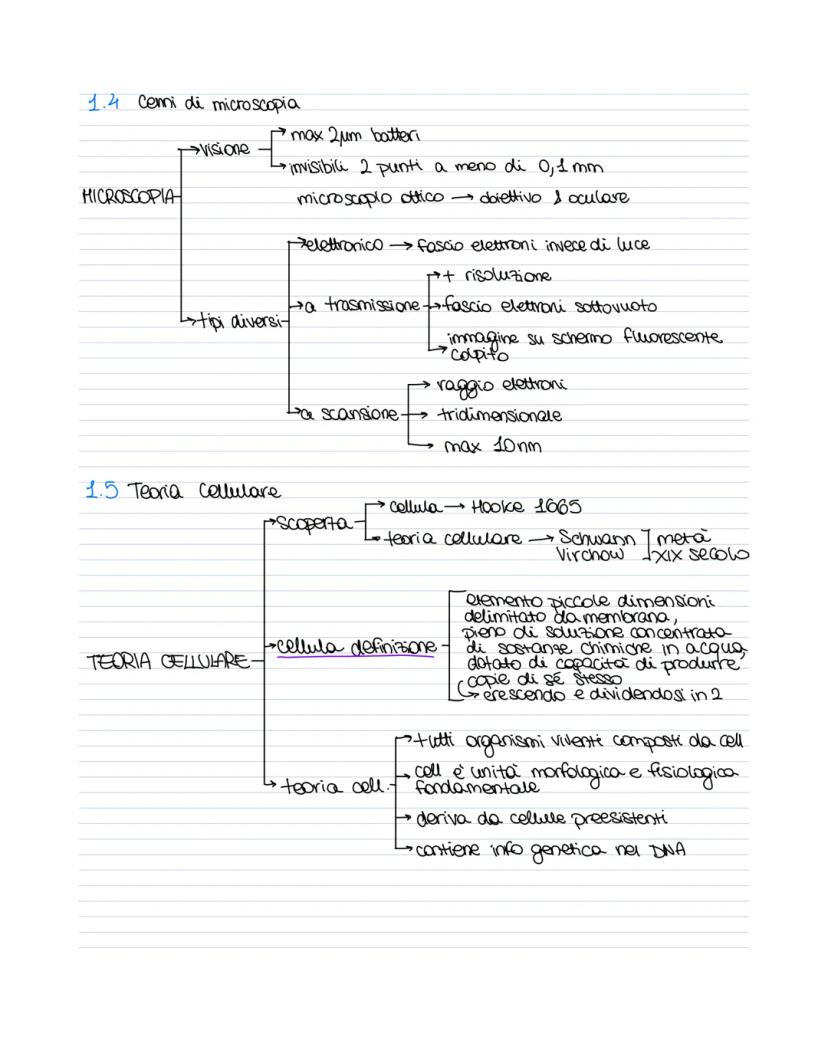 1.4 Cenni di microscopia
max 2μm batteri
→visione
invisibili 2 punti a meno di 0,1 mm
MICROSCOPIA
microscopio ottico → obiettivo & oculare
elettronico → fascio elettroni invece di luce
+ risoluzione
a trasmissione → fascio elettroni sottovuoto
tipi diversi
immagine su schermo fluorescente
colpito
raggio elettroni
a scansione → tridimensionale
max 10nm
1.5 Teoria Cellulare
cellula → Hooke 1665
scoperta
teoria cellulare → Schwann ] metà
Virchow ] XIX secolo
elemento piccole dimensioni
delimitato da membrana,
pieno di soluzione concentrata
cellula definizione
di sostanze chimiche in acqua,
TEORIA CELLULARE
dotato di capacità di produrre
copie di sé stesso
↳ crescendo e dividendosi in 2
tutti organismi viventi composti da cell
cell è unità morfologica e fisiologica
teoria cell.
fondamentale
deriva da cellule preesistenti
contiene info genetica nel DNA